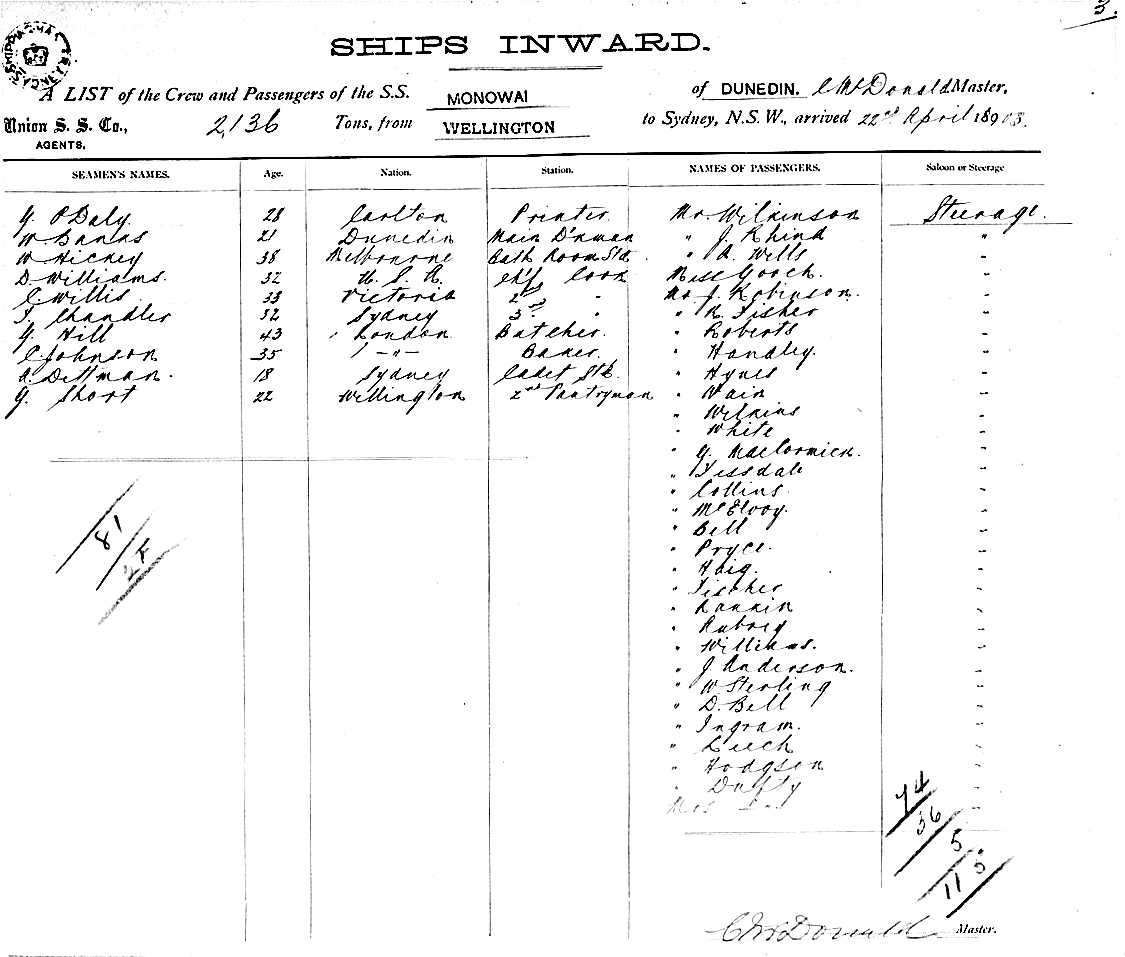 3.
SHIPS INWARD.
A LIST of the Crew and Passengers of the S.S. MONOWAI of DUNEDIN. C McDonald Master,
Union S. S. Co., 2136 Tons, from WELLINGTON to Sydney, N.S.W., arrived 22nd April 18903.
AGENTS,
SEAMEN'S NAMES. Age. Nation. Station. NAMES OF PASSENGERS. Saloon or Steerage
G. O'Daly. 28 Carlton Printer. Mr Wilkinson Steerage.
W Banks 21 Dunedin Main D'kman " J. Rhind "
W Hickey 38 Melbourne Bath Room Std. " A. Wells "
D. Williams. 32 U. S. A. Ch'f Cook Miss Gooch. "
C. Willis. 33 Victoria 2nd " Mr J. Robinson. "
T. Chandler 32 Sydney 3rd " " R. Fisher "
G. Hill 43 London Butcher. " Roberts "
C. Johnson 35 -"- Baker. " Handley. "
A. Dettman. 18 Sydney Cadet Std. " Hynes "
G. Short 22 Wellington 2nd Pantryman " Vain "
" Wilkins "
" White "
" G. MacCormick. "
" Tissdale "
" Collins. "
" McElroy. "
" Bell "
" Pryce. "
" Haig. "
" Fischer "
" Rankin "
" Aubrey "
" Williams. "
" J. Anderson. "
" W Sterling "
" D. Bell "
" Ingram. "
" Leech "
" Hodgson "
" Duffy "
Mrs
81
2F
74
36
5
115
C McDonald Master.